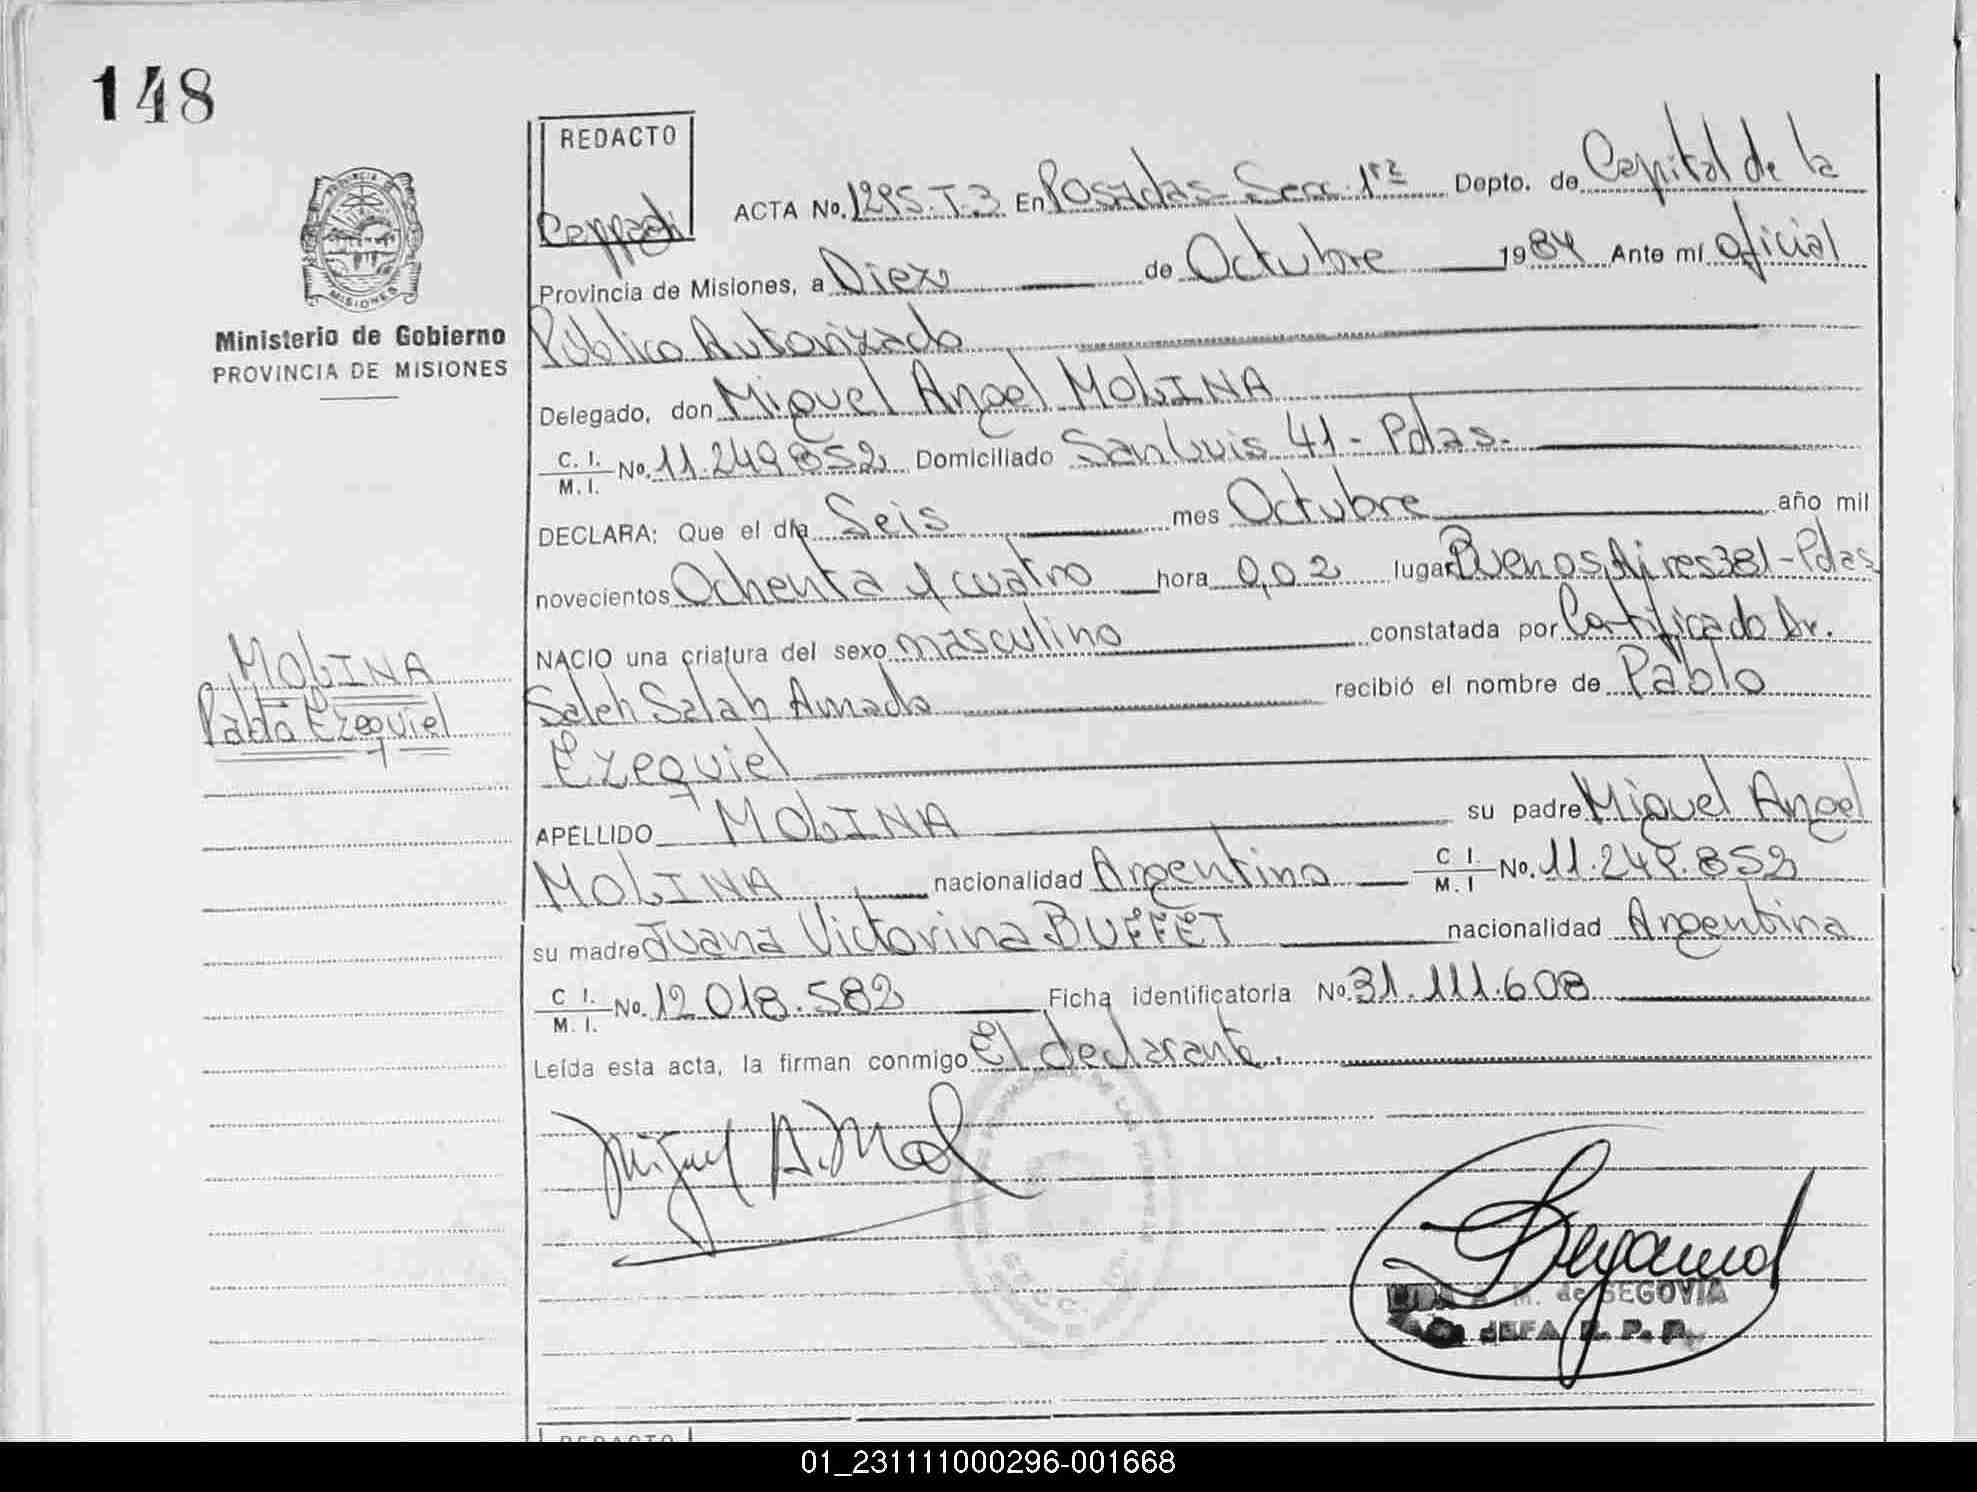 148
REDACTO
Ceppadi
ACTA No. 1295.T.3 En Posadas Secc. 1ra Depto. de Capital de la
Provincia de Misiones, a Diez de Octubre 1984 Ante mí oficial
Público Autorizado
Delegado, don Miguel Angel MOLINA
C. I. M. I. No. 11.249.852 Domiciliado San Luis 41 - Pdas.
DECLARA: Que el día Seis mes Octubre año mil
novecientos Ochenta y cuatro hora 0,02 lugar Buenos Aires 381 - Pdas
NACIO una criatura del sexo masculino constatada por Certificado Dr.
Saleh Salah Amado recibió el nombre de Pablo
Ezequiel
APELLIDO MOLINA su padre Miguel Angel
MOLINA nacionalidad Argentino C I. M. I No. 11.249.852
su madre Juana Victorina BUFFET nacionalidad Argentina
C I. M. I. No. 12.018.582 Ficha identificatoria No. 31.111.608
Leída esta acta, la firman conmigo El declarante.
Miguel A. Mol
de SEGOVIA
JEFA R. P. P.
PROVINCIA DE
MISIONES
Ministerio de Gobierno
PROVINCIA DE MISIONES
MOLINA
Pablo Ezequiel
REDACTO
01_231111000296-001668